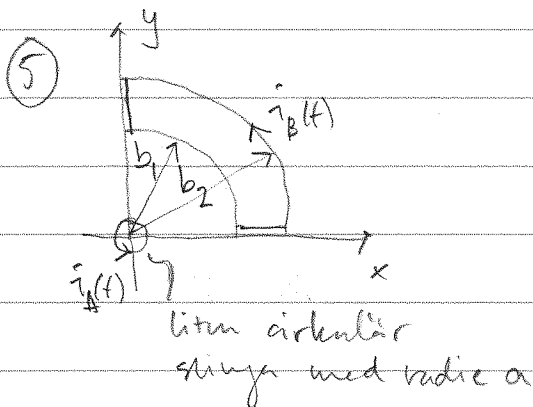 5
y
i_B(t)
b_1
b_2
x
i_A(t)
liten cirkulär
slinga med radie a